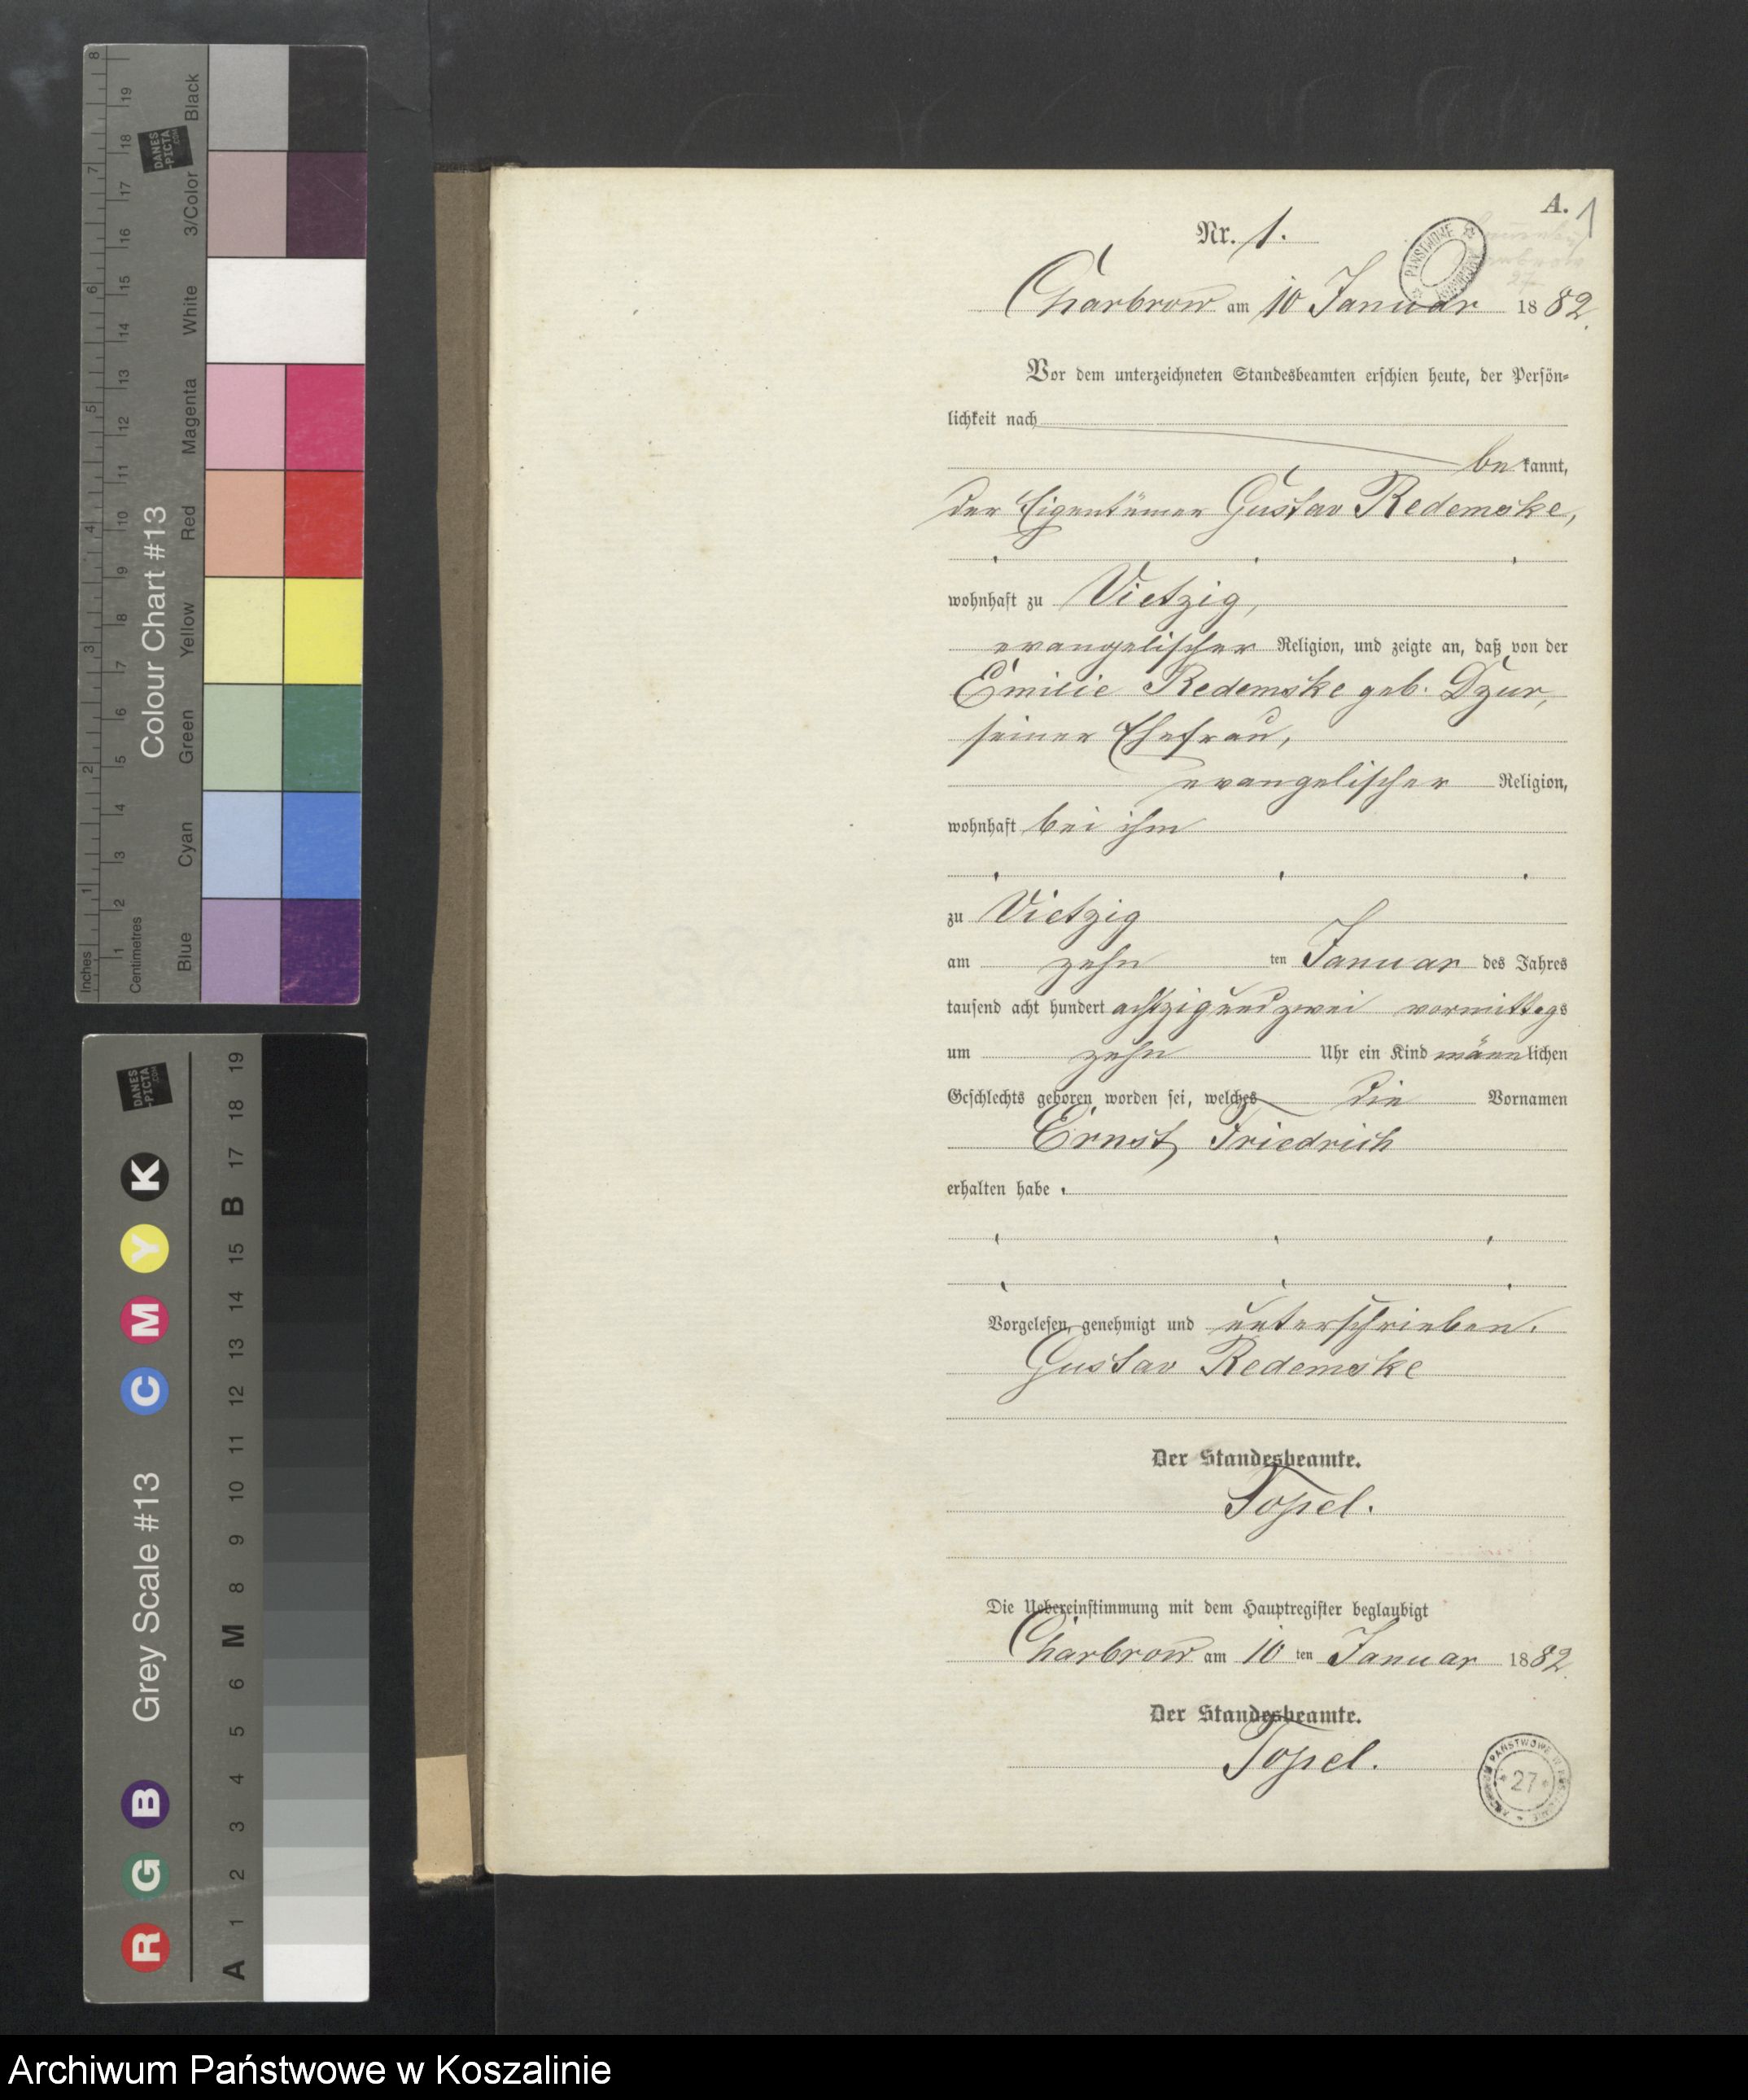 A. 1
Nr. 1.
Charbrow am 10 Januar 1882.
Vor dem unterzeichneten Standesbeamten erschien heute, der Persön-
lichkeit nach
be kannt,
der Eigentümer Gustav Redemske,
wohnhaft zu Vietzig,
evangelischer Religion, und zeigte an, daß von der
Emilie Redemske geb. Dzur,
seiner Ehefrau,
evangelischer Religion,
wohnhaft bei ihm
zu Vietzig
am zehn ten Januar des Jahres
tausend acht hundert achtzig und zwei vormittags
um zehn Uhr ein Kind männlichen
Geschlechts geboren worden sei, welches die Vornamen
Ernst Friedrich
erhalten habe.
Vorgelesen, genehmigt und unterschrieben.
Gustav Redemske
Der Standesbeamte.
Topel.
Die Uebereinstimmung mit dem Hauptregister beglaubigt
Charbrow am 10 ten Januar 1882.
Der Standesbeamte.
Topel.
PAŃSTWOWE
27
Colour Chart #13
Inches 1 2 3 4 5 6 7 8
Centimetres 1 2 3 4 5 6 7 8 9 10 11 12 13 14 15 16 17 18 19
Blue Cyan Green Yellow Red Magenta White 3/Color Black
DANES
-PICTA
.COM
Grey Scale #13
R G B C M Y K
A 1 2 3 4 5 6 M 8 9 10 11 12 13 14 15 B 17 18 19
DANES
-PICTA
.COM
Archiwum Państwowe w Koszalinie